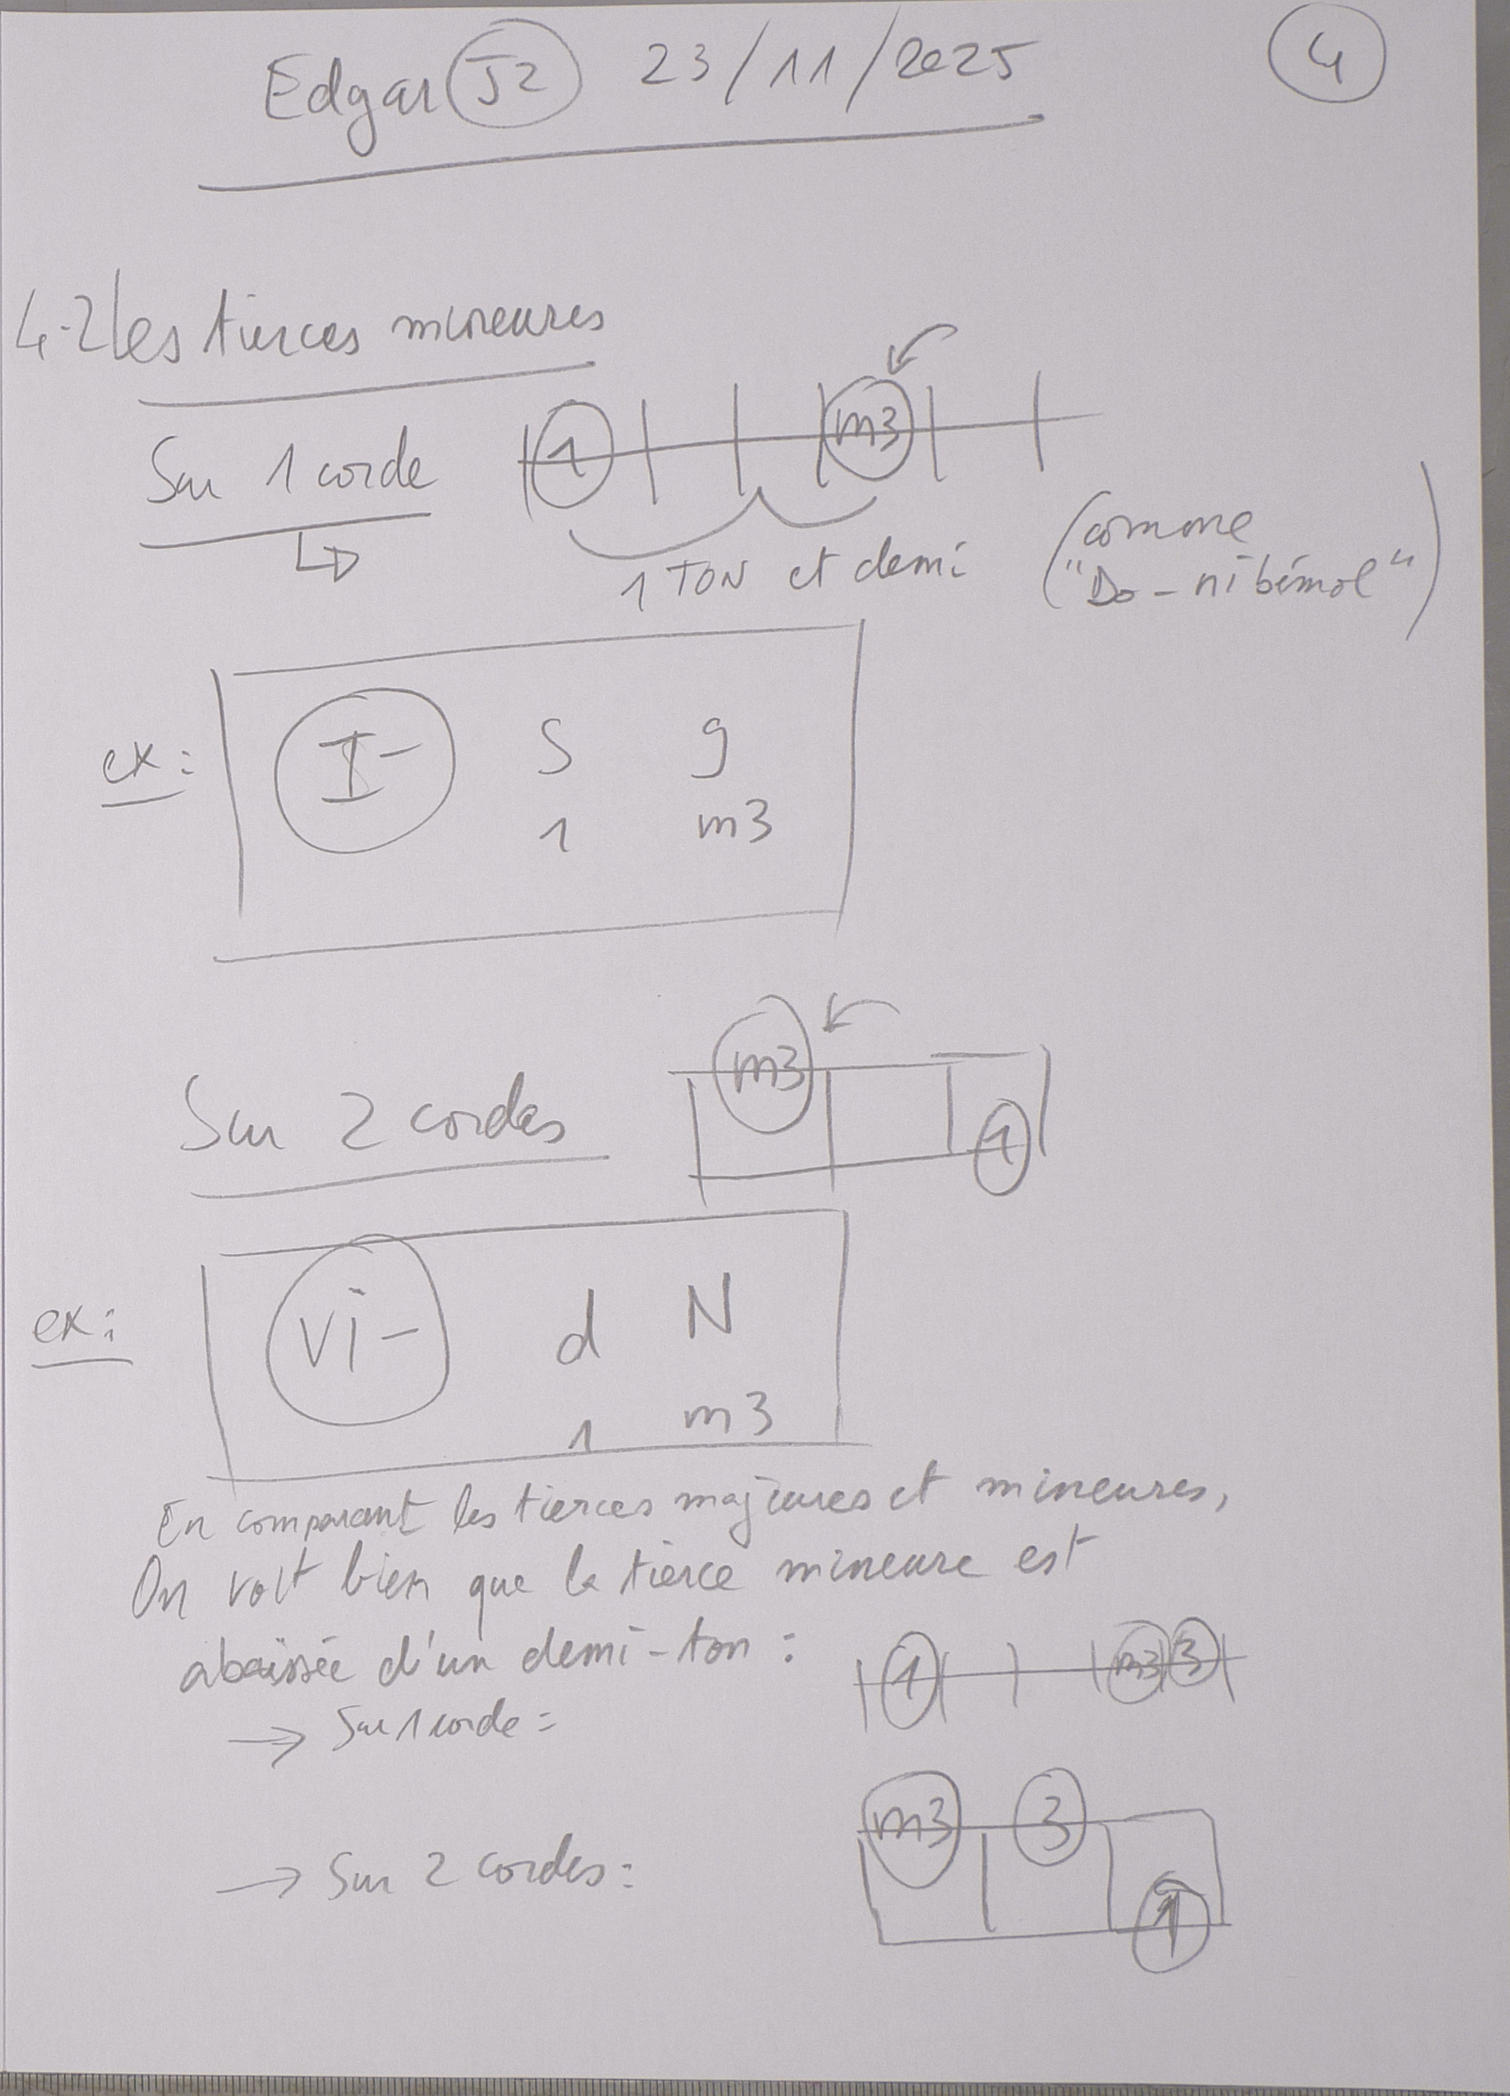 Edgar J2 23/11/2025
4
4-2 les tierces mineures
Sur 1 corde
1 m3
1 TON et demi
(comme
"Do - mi bémol")
ex: I- S g
1 m3
Sur 2 cordes
m3
1
ex: Vi- d N
1 m3
En comparant les tierces majeures et mineures,
On voit bien que la tierce mineure est
abaissée d'un demi-ton :
1 m3 3
→ Sur 1 corde =
→ Sur 2 cordes :
m3 3
1